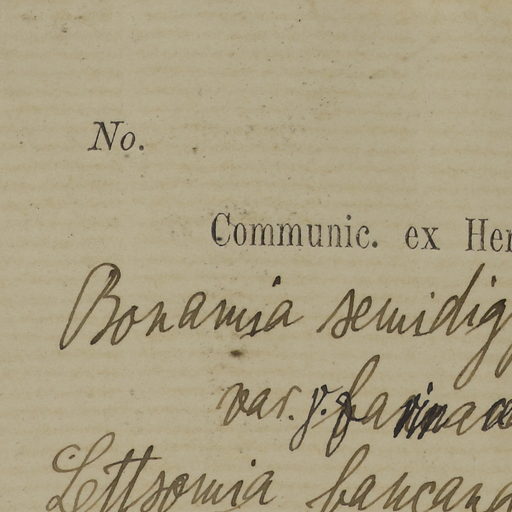 No.
Communic. ex Her
Bonamia semidigy
var. γ. farinace
Lettsomia bancana